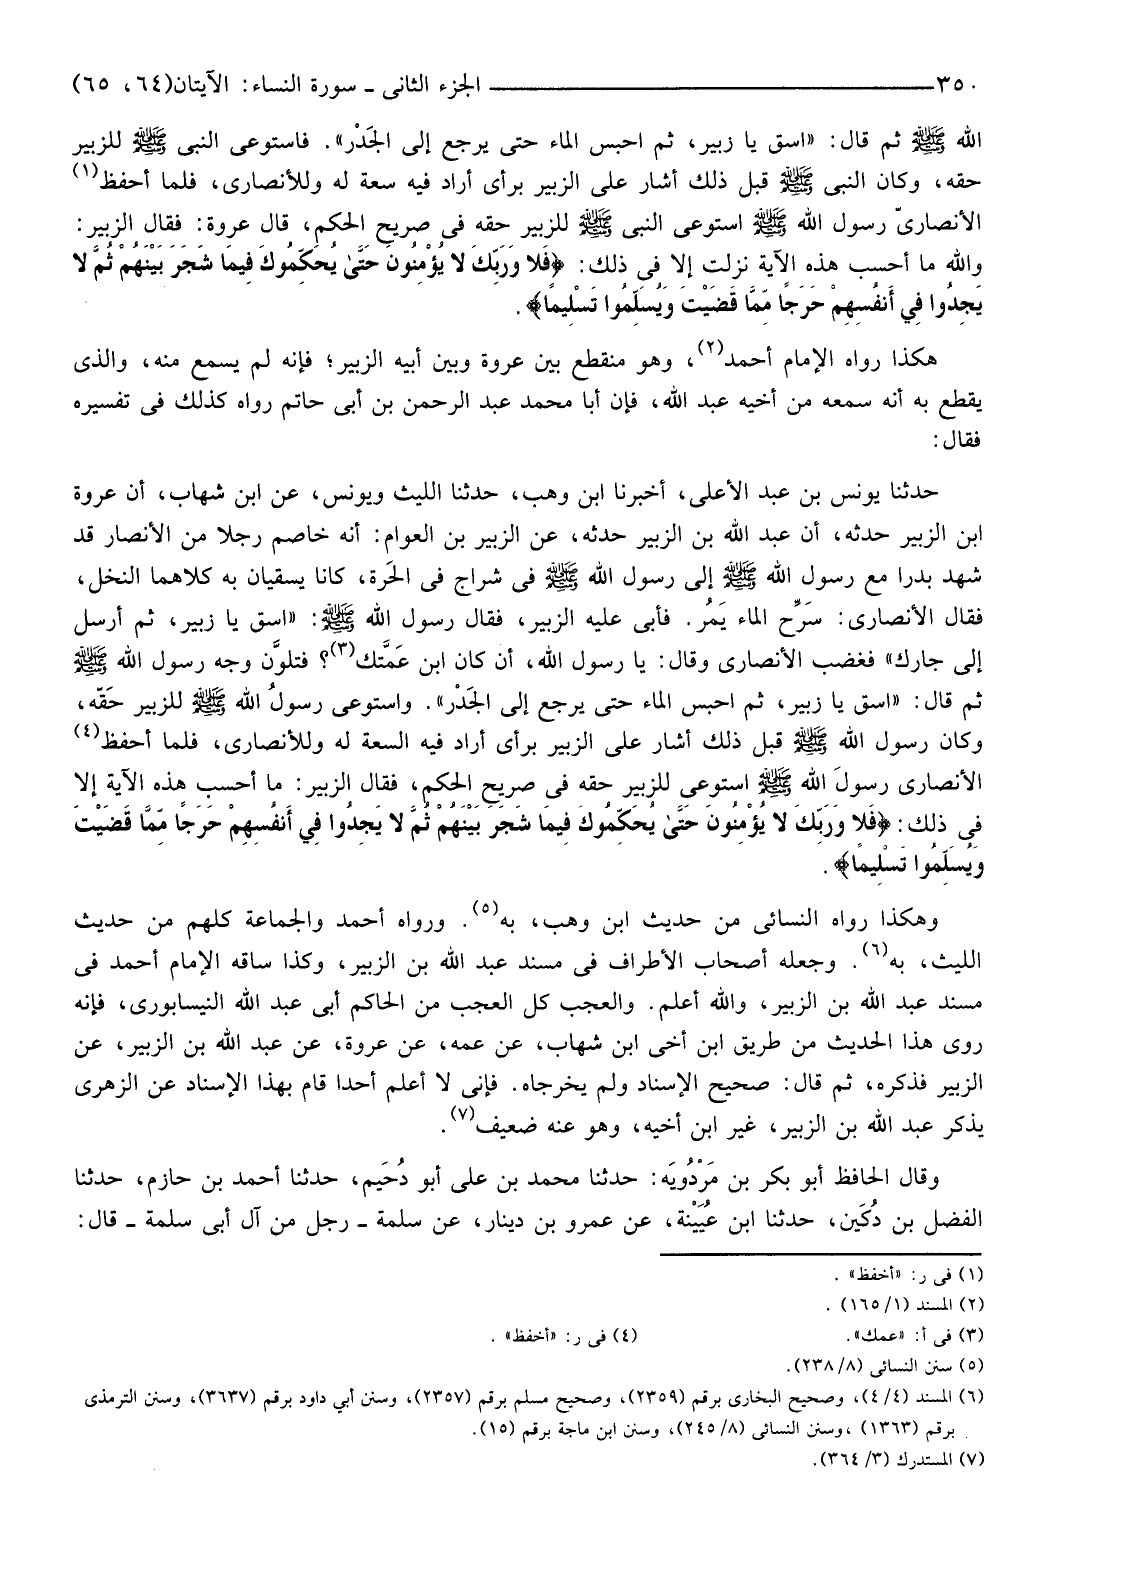 ٣٥٠ ــــــــــــــــــــــــــــ الجزء الثانى ـ سورة النساء: الآيتان(٦٤، ٦٥)
الله ﷺ ثم قال: «اسق يا زبير، ثم احبس الماء حتى يرجع إلى الجَدْر». فاستوعى النبى ﷺ للزبير
حقه، وكان النبى ﷺ قبل ذلك أشار على الزبير برأى أراد فيه سعة له وللأنصارى، فلما أحفظ(١)
الأنصارىّ رسول الله ﷺ استوعى النبى ﷺ للزبير حقه فى صريح الحكم، قال عروة: فقال الزبير:
والله ما أحسب هذه الآية نزلت إلا فى ذلك: ﴿فَلا وَرَبِّكَ لا يُؤْمِنُونَ حَتَّىٰ يُحَكِّمُوكَ فِيمَا شَجَرَ بَيْنَهُمْ ثُمَّ لا
يَجِدُوا فِي أَنفُسِهِمْ حَرَجًا مِّمَّا قَضَيْتَ وَيُسَلِّمُوا تَسْلِيمًا﴾.
هكذا رواه الإمام أحمد(٢)، وهو منقطع بين عروة وبين أبيه الزبير؛ فإنه لم يسمع منه، والذى
يقطع به أنه سمعه من أخيه عبد الله، فإن أبا محمد عبد الرحمن بن أبى حاتم رواه كذلك فى تفسيره
فقال:
حدثنا يونس بن عبد الأعلى، أخبرنا ابن وهب، حدثنا الليث ويونس، عن ابن شهاب، أن عروة
ابن الزبير حدثه، أن عبد الله بن الزبير حدثه، عن الزبير بن العوام: أنه خاصم رجلا من الأنصار قد
شهد بدرا مع رسول الله ﷺ إلى رسول الله ﷺ فى شراج فى الحَرة، كانا يسقيان به كلاهما النخل،
فقال الأنصارى: سَرِّح الماء يَمُر. فأبى عليه الزبير، فقال رسول الله ﷺ: «اسق يا زبير، ثم أرسل
إلى جارك» فغضب الأنصارى وقال: يا رسول الله، أن كان ابن عَمَّتك(٣)؟ فتلوَّن وجه رسول الله ﷺ
ثم قال: «اسق يا زبير، ثم احبس الماء حتى يرجع إلى الجَدْر». واستوعى رسولُ الله ﷺ للزبير حَقّه،
وكان رسول الله ﷺ قبل ذلك أشار على الزبير برأى أراد فيه السعة له وللأنصارى، فلما أحفظ(٤)
الأنصارى رسولَ الله ﷺ استوعى للزبير حقه فى صريح الحكم، فقال الزبير: ما أحسب هذه الآية إلا
فى ذلك: ﴿فَلا وَرَبِّكَ لا يُؤْمِنُونَ حَتَّىٰ يُحَكِّمُوكَ فِيمَا شَجَرَ بَيْنَهُمْ ثُمَّ لا يَجِدُوا فِي أَنفُسِهِمْ حَرَجًا مِّمَّا قَضَيْتَ
وَيُسَلِّمُوا تَسْلِيمًا﴾.
وهكذا رواه النسائى من حديث ابن وهب، به(٥). ورواه أحمد والجماعة كلهم من حديث
الليث، به(٦). وجعله أصحاب الأطراف فى مسند عبد الله بن الزبير، وكذا ساقه الإمام أحمد فى
مسند عبد الله بن الزبير، والله أعلم. والعجب كل العجب من الحاكم أبى عبد الله النيسابورى، فإنه
روى هذا الحديث من طريق ابن أخى ابن شهاب، عن عمه، عن عروة، عن عبد الله بن الزبير، عن
الزبير فذكره، ثم قال: صحيح الإسناد ولم يخرجاه. فإنى لا أعلم أحدا قام بهذا الإسناد عن الزهرى
يذكر عبد الله بن الزبير، غير ابن أخيه، وهو عنه ضعيف(٧).
وقال الحافظ أبو بكر بن مَرْدُويَه: حدثنا محمد بن على أبو دُحَيم، حدثنا أحمد بن حازم، حدثنا
الفضل بن دُكَين، حدثنا ابن عُيَيْنة، عن عمرو بن دينار، عن سلمة ـ رجل من آل أبى سلمة ـ قال:
(١) فى ر: «أخفظ».
(٢) المسند (١/ ١٦٥).
(٣) فى أ: «عمك». (٤) فى ر: «أخفظ».
(٥) سنن النسائى (٨/ ٢٣٨).
(٦) المسند (٤/ ٤)، وصحيح البخارى برقم (٢٣٥٩)، وصحيح مسلم برقم (٢٣٥٧)، وسنن أبي داود برقم (٣٦٣٧)، وسنن الترمذى
برقم (١٣٦٣)، وسنن النسائى (٨/ ٢٤٥)، وسنن ابن ماجة برقم (١٥).
(٧) المستدرك (٣/ ٣٦٤).